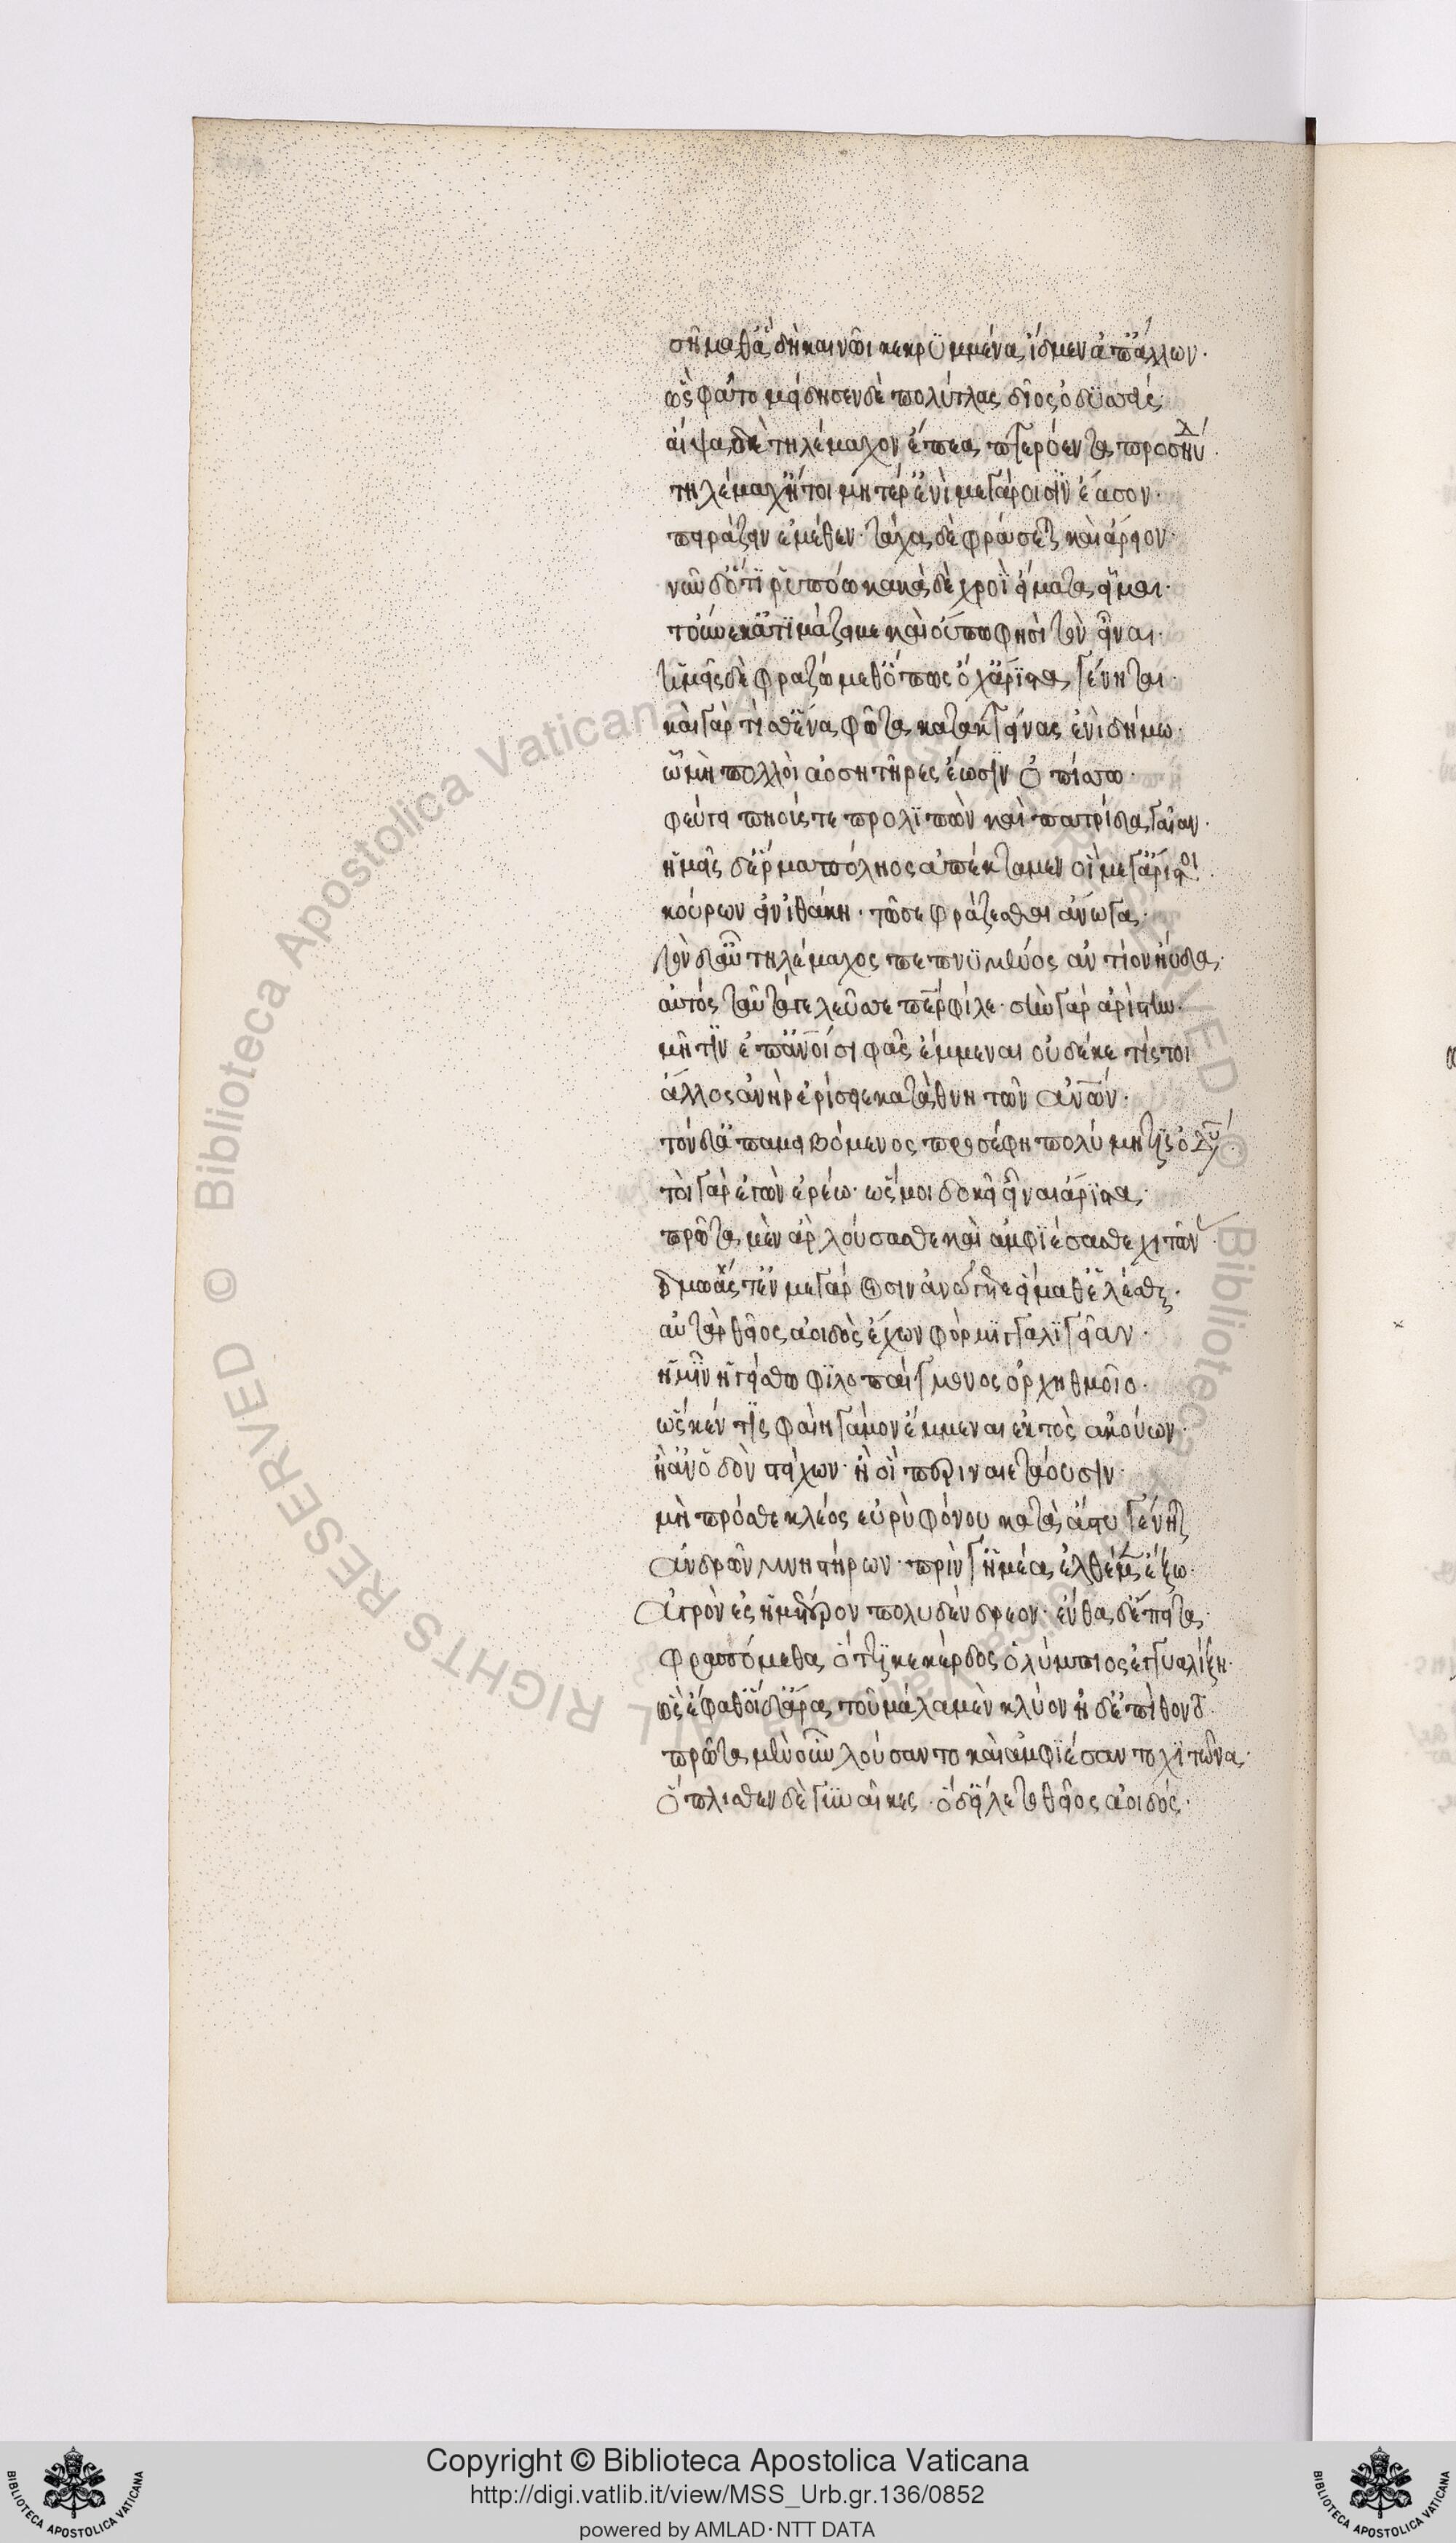 σῆμαθ' ἃ δὴ καὶ νῶι κεκρυμμένα ἴδμεν ἀπ' ἄλλων·
ὣς φάτο μείδησεν δὲ πολύτλας δῖος ὀδυσσεύς·
αἶψα δὲ τηλέμαχον ἔπεα πτερόεντα προσηύδα·
τηλέμαχ' ἤτοι μητέρ' ἐνὶ μεγάροισιν ἔασον·
πειράζειν ἐμέθεν· τάχα δὲ φράσεται καὶ ἄρειον·
νῦν δ' ὅττι ῥυπόω κακὰ δὲ χροῒ εἵματα εἷμαι·
τοὔνεκ' ἀτιμάζει με καὶ οὔπω φησὶ τὸν εἶναι·
ἡμεῖς δὲ φραζώμεθ' ὅπως ὄχ' ἄριστα γένηται·
καὶ γάρ τίς θ' ἕνα φῶτα κατακτείνας ἐνὶ δήμω·
ᾧ μὴ πολλοὶ ἀοσητῆρες ἔωσιν ὀπίσσω·
φεύγει πηούς τε προλιπὼν καὶ πατρίδα γαῖαν·
ἡμεῖς δ' ἕρμα πόληος ἀπέκταμεν οἳ μέγ' ἄριστοι·
κούρων εἰν ἰθάκη· τῶ σε φράζεσθαι ἄνωγα·
τὸν δ' αὖ τηλέμαχος πεπνυμένος ἀντίον ηὔδα·
αὐτὸς ταῦτά γε λεῦσσε πάτερ φίλε· σὴν γὰρ ἀρίστην·
μῆτιν ἐπ' ἀνούς φασ' ἔμμεναι οὐδέ κε τίς τοι
ἄλλος ἀνὴρ ἐρίσειε καταθνητῶν ἀνων·
τὸν δ' ἀπαμειβόμενος προσέφη πολύμητις ὀδυ·
τοὶ γὰρ ἐγὼν ἐρέω· ὥς μοι δοκεῖ εἶναι ἄριστα·
πρῶτα μὲν ἂρ λούσασθε καὶ ἀμφιέσασθε χιτῶν·
δμωὰς τ' ἐν μεγάροισιν ἀνώγετε εἵμαθ' ἑλέσθαι·
αὐτὰρ θεῖος ἀοιδὸς ἔχων φόρμιγγα λίγειαν·
ἡμῖν ἡγείσθω φιλοπαίγμονος ὀρχηθμοῖο·
ὥς κέν τις φαίη γάμον ἔμμεναι ἐκτὸς ἀκούων·
ἢ ἀν' ὁδὸν στείχων· ἢ οἳ περιναιετάουσιν·
μὴ πρόσθε κλέος εὐρὺ φόνου κατὰ ἄστυ γένηται
ἀνδρῶν μνηστήρων· πρίν γ' ἡμέας ἐλθέμεν ἔξω·
ἀγρὸν ἐς ἡμέτερον πολυδένδρεον· ἔνθα δ' ἔπειτα·
φρασσόμεθα ὅττι κε κέρδος ὀλύμπιος ἐγγυαλίξη·
ὣς ἔφαθ' οἳ δ' ἄρα τοῦ μάλα μὲν κλύον ἠδ' ἐπίθοντο·
πρῶτα μὲν οὖν λούσαντο καὶ ἀμφιέσαντο χιτῶνα·
ὅπλισθεν δὲ γυναῖκες· ὃ δ' εἵλετο θεῖος ἀοιδός·
Copyright © Biblioteca Apostolica Vaticana
http://digi.vatlib.it/view/MSS_Urb.gr.136/0852
powered by AMLAD·NTT DATA